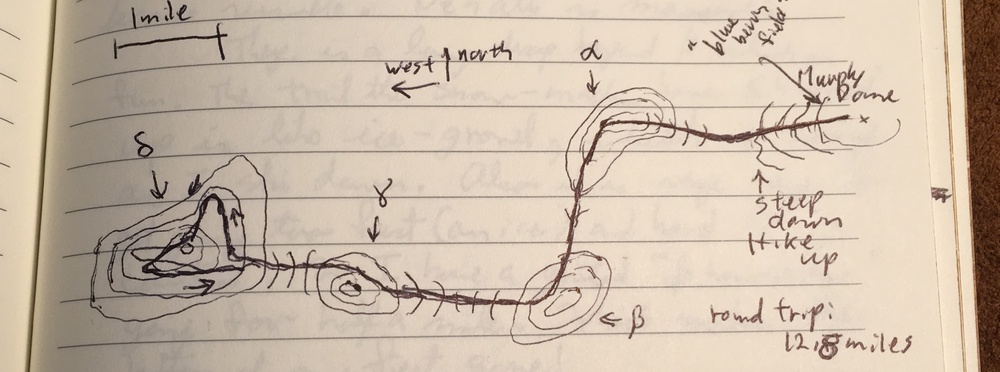 1 mile
west
north
α
"blue
berry
fields"
Murphy
Dome
x
δ
γ
steep
down
Hike
up
β
round trip:
12.8 miles